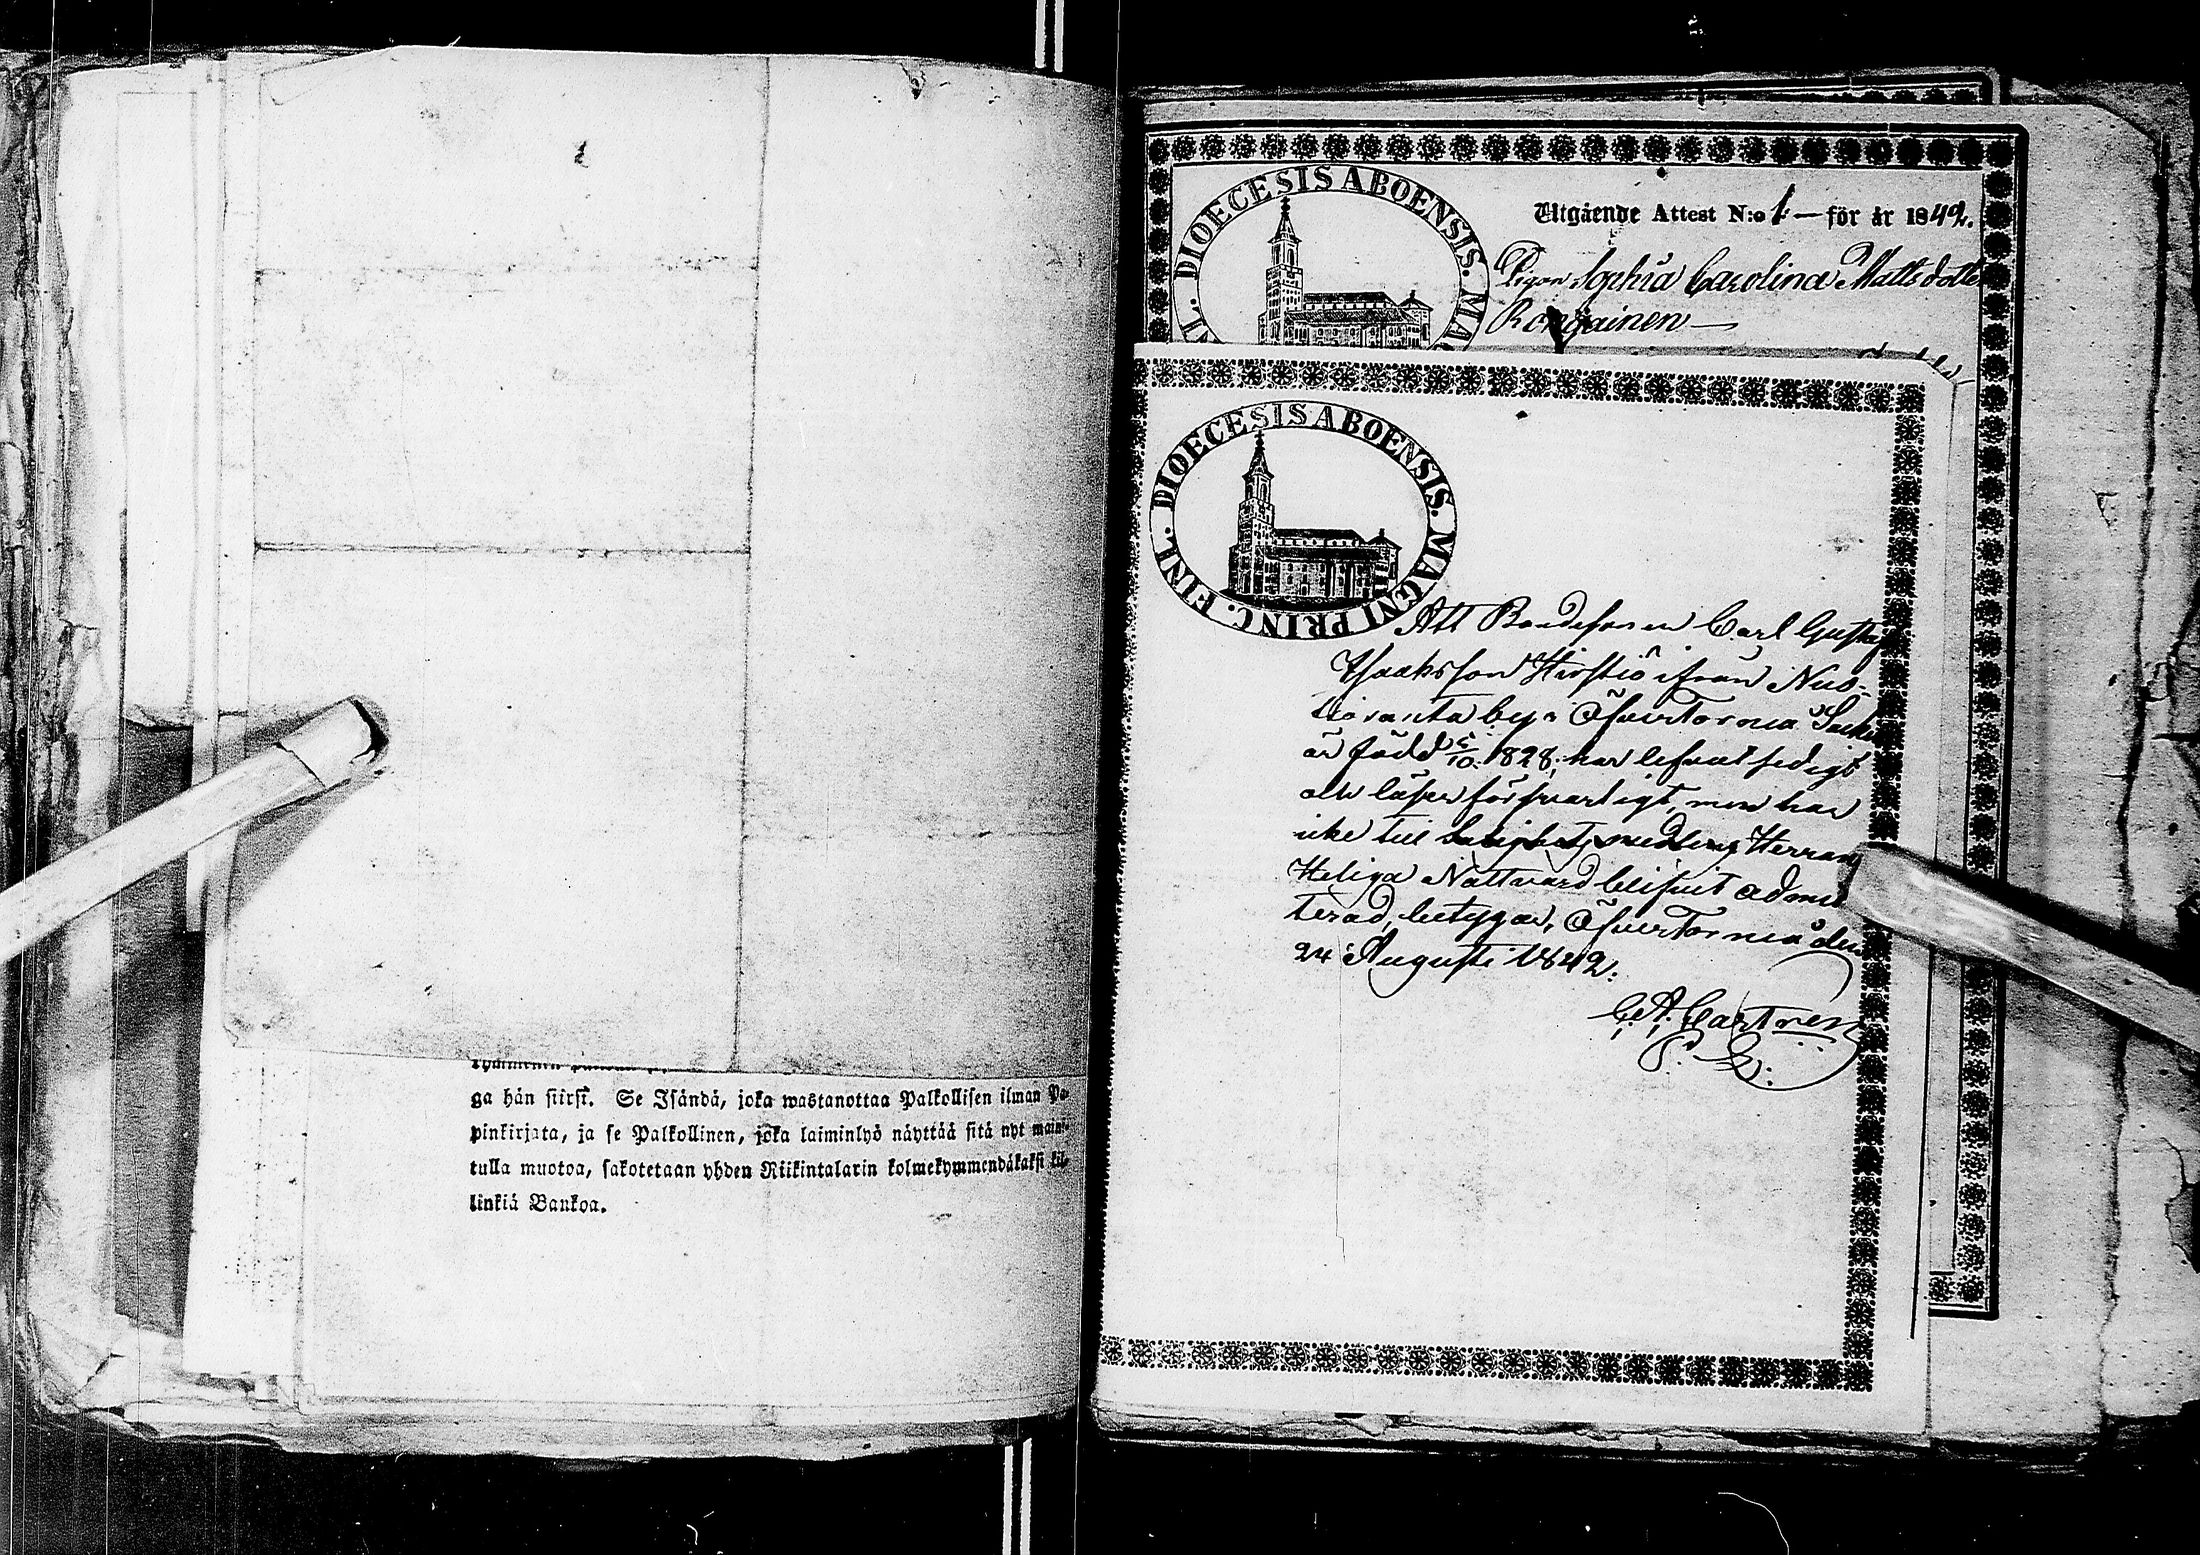 ga hän siirsi. Se Isändä, joka wastanottaa Palkollisen ilman Pa-
pinkirjata, ja se Palkollinen, joka laiminlyö näyttää sitä nyt maini-
tulla muotoa, sakotetaan yhden Riikintalarin kolmekymmendäkaksi kil-
linkiä Bankoa.
DIOECESIS ABOENSIS. MAG
Utgående Attest N:o 1 — för år 1842.
Pigan Sophia Carolina Mattsdotter
Rongainen —
DIOECESIS ABOENSIS. MAGNI PRINC. FINL.
Att Bondesonen Carl Gustaf
Isaaksson Hirsiö ifrån Nuo-
lioranta by i Öfvertorneå Socken
är född 5/10 1828, har lefvat sedigt
och läser försvarligt, men har
icke till Herrans
Heliga Nattvard blifvit admit-
terad, betygar, Öfvertorneå den
24 Augusti 1842.
C. A. Castrén